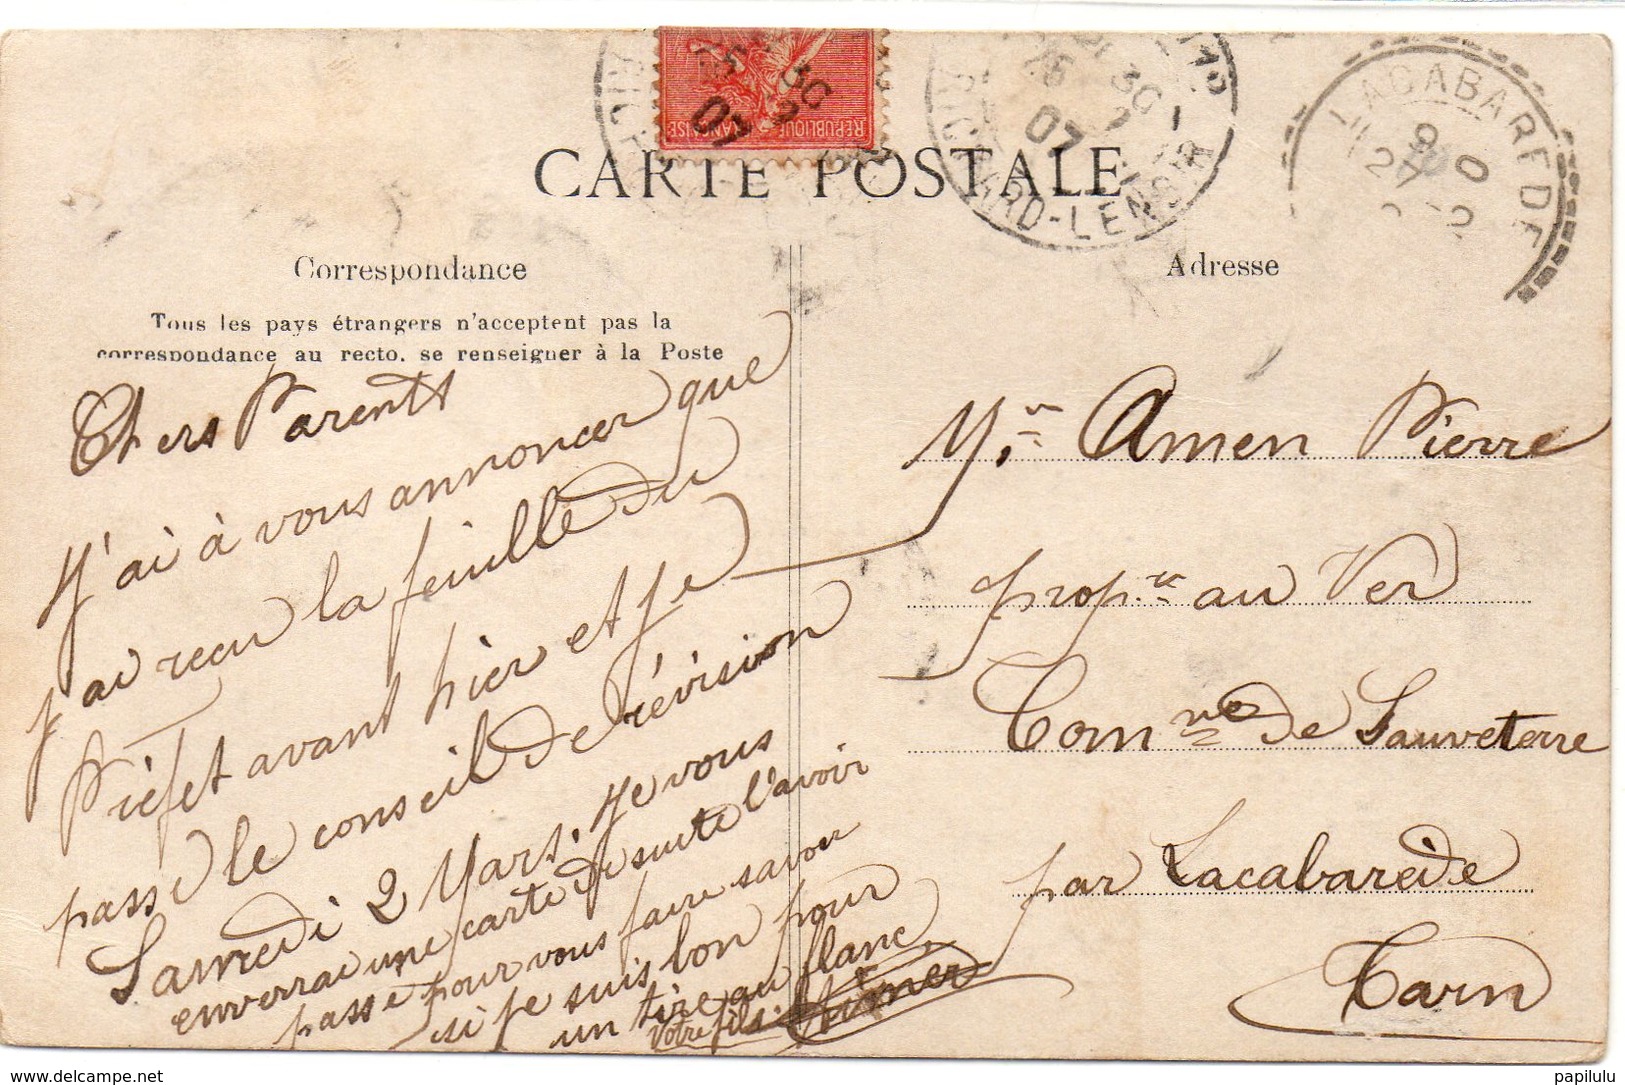 REPUBLIQUE FRANÇAISE
25 30
2
07
CARTE POSTALE
25 30
2
07
RICHARD-LENOIR
LACABAREDE
9 0
27
2
Correspondance
Tous les pays étrangers n'acceptent pas la
correspondance au recto. se renseigner à la Poste
Chers Parents
J'ai à vous annoncer que
j'ai recu la feuille du
Préfet avant hier et je
passe le conseil de révision
Samedi 2 Mars. Je vous
enverrai une carte de suite l'avoir
passé pour vous faire savoir
si je suis bon pour
un tire au flanc
Votre fils.
Adresse
Mr. Amen Pierre
propre au Ver
Comne de Sauveterre
par Lacabarède
Tarn
www.delcampe.net
papilulu